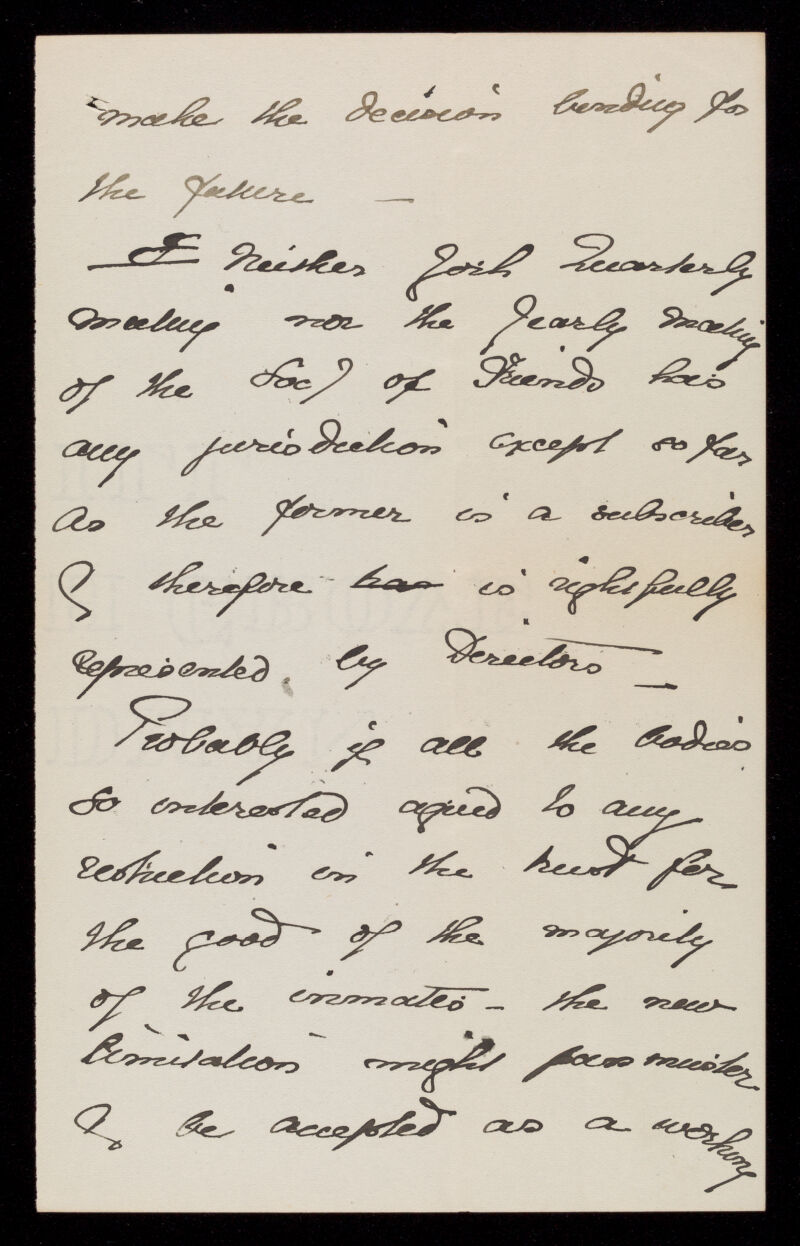 make the decision binding for
the future —
I Neither York Quarterly
Meeting nor the Yearly Meeting
of the Socy of Friends has
any jurisdiction except so far
as the former is a subscriber
& therefore has is rightfully
represented by Directors —
Probably if all the bodies
so interested agreed to any
restriction in the trust for
the good of the majority
of the inmates – the new
limitation might pass muster
& be accepted as a working